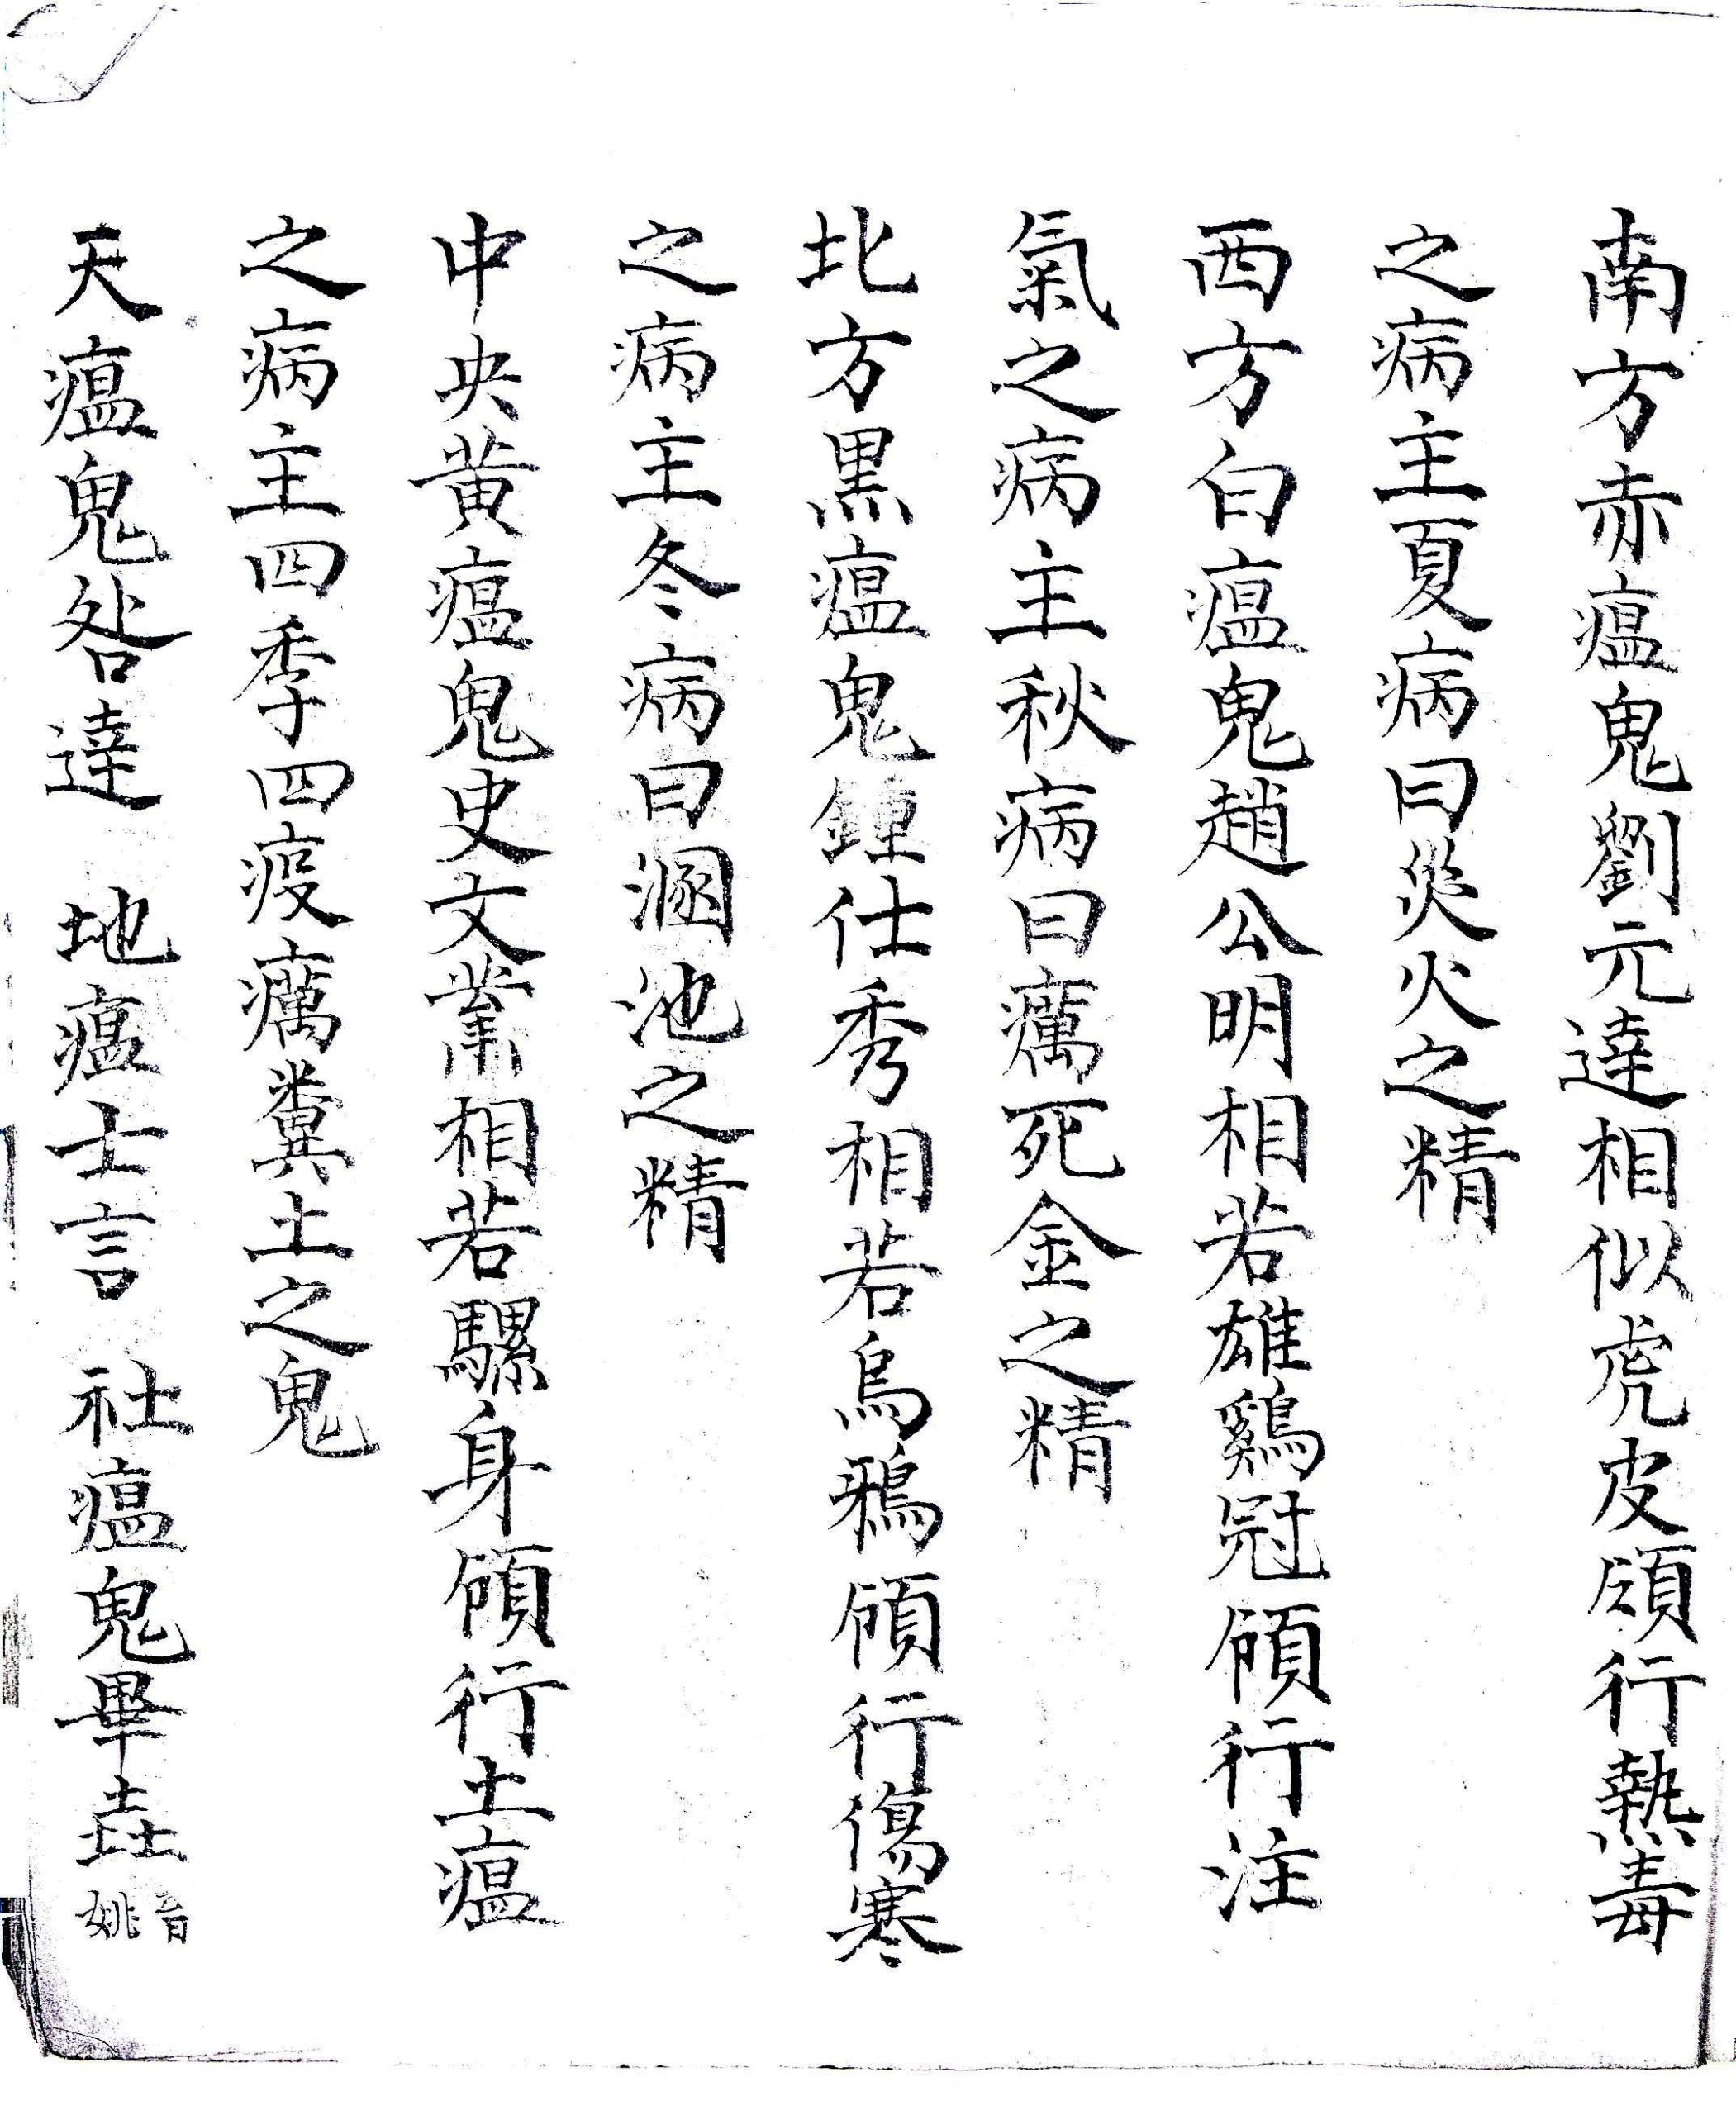 南方赤瘟鬼劉元達相似虎皮頎行熱毒
之病主夏病曰炎火之精
西方白瘟鬼趙公明相若雄鷄冠頎行注
氣之病主秋病曰癘死金之精
北方黑瘟鬼鍾仕秀相若烏鴉頎行傷寒
之病主冬病曰溷池之精
中央黃瘟鬼史文業相若騾身頎行土瘟
之病主四季四疫癘糞土之鬼
天瘟鬼咎達 地瘟士言 社瘟鬼畢垚音姚